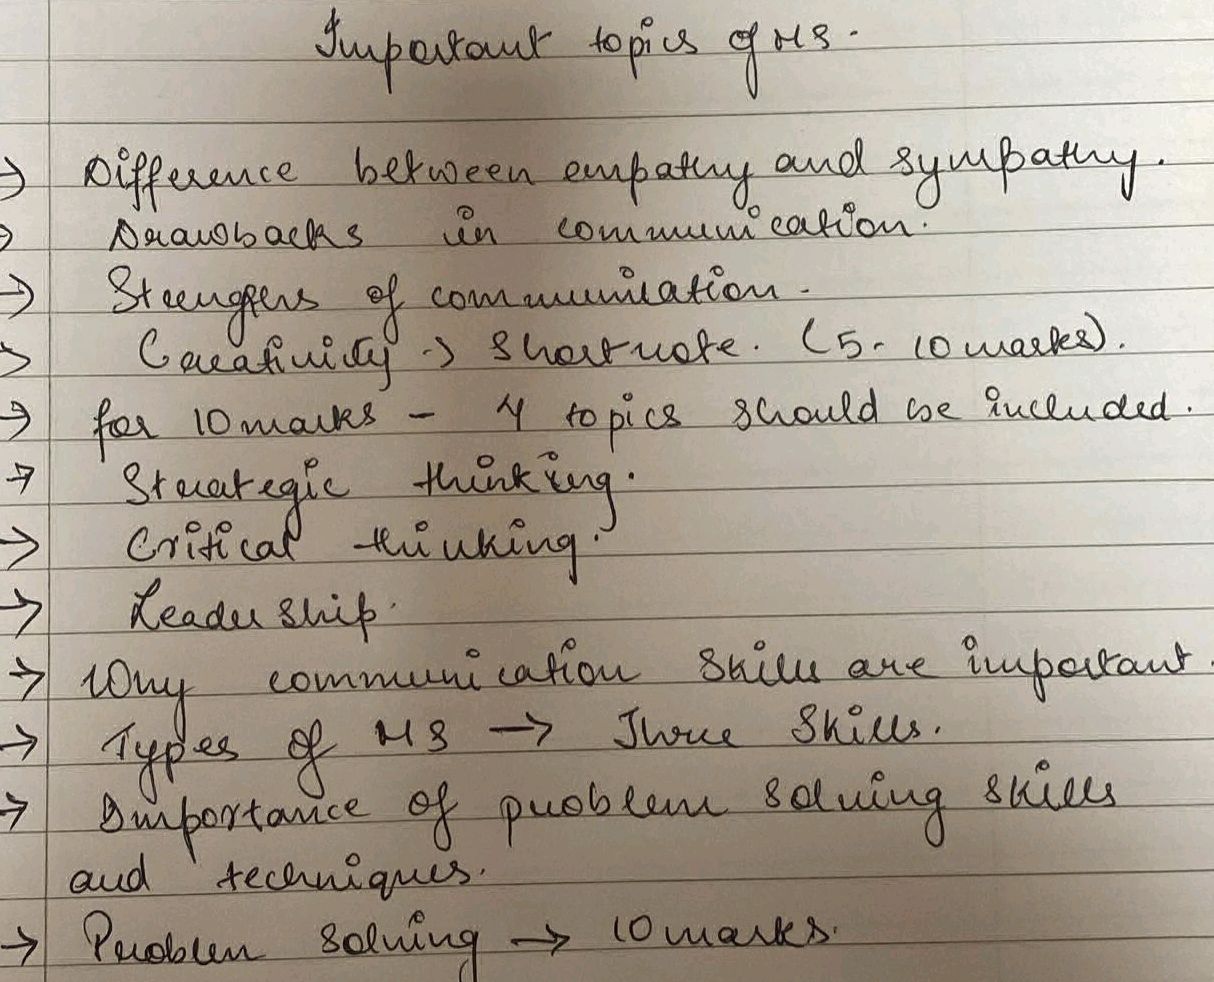 Important topics of MS.
→ Difference between empathy and sympathy.
→ Drawbacks in communication.
→ of communication.
→ Creativity → Short note. (5-10 marks).
→ for 10 marks - 4 topics should be included.
→ Strategic thinking.
→ Critical thinking.
→ Leadership.
→ Why communication skills are important.
→ Types of MS → Three Skills.
→ Importance of problem solving skills
and techniques.
→ Problem solving → 10 marks.